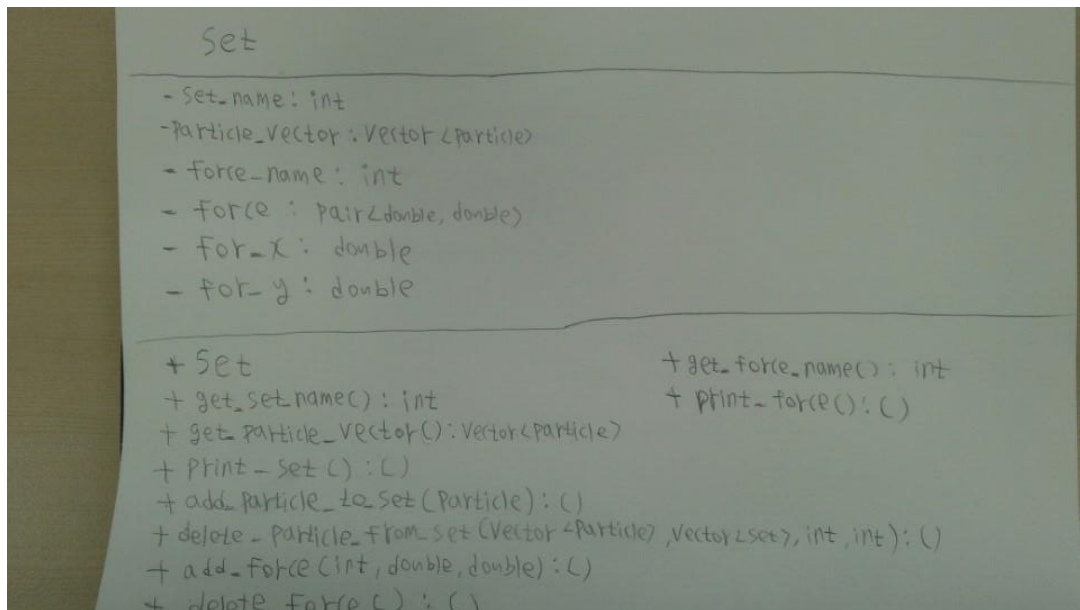 Set
- Set_name: int
- Particle_vector: vector<particle>
- force_name: int
- force : pair<double, double>
- for_x : double
- for_y : double
+ Set
+ get_set_name() : int
+ get_particle_vector() : vector<particle>
+ print_set() : ()
+ add_particle_to_set(Particle) : ()
+ delete_particle_from_set(vector<particle>, vector<set>, int, int) : ()
+ add_force(int, double, double) : ()
+ delete_force() : ()
+ get_force_name() : int
+ print_force() : ()